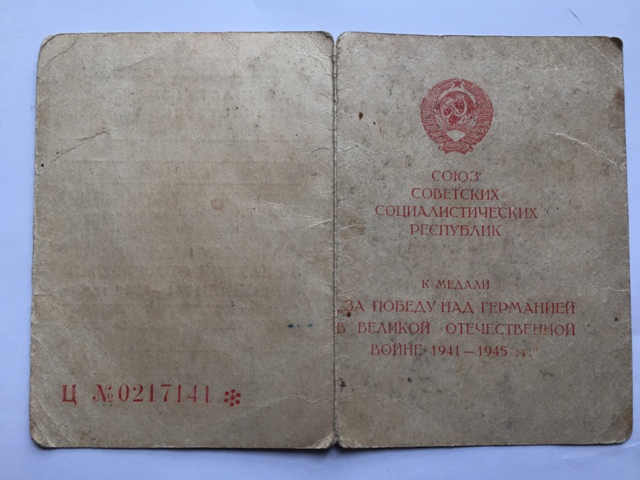 Ц №0217141 *
СОЮЗ
СОВЕТСКИХ
СОЦИАЛИСТИЧЕСКИХ
РЕСПУБЛИК
К МЕДАЛИ
„ЗА ПОБЕДУ НАД ГЕРМАНИЕЙ
В ВЕЛИКОЙ ОТЕЧЕСТВЕННОЙ
ВОЙНЕ 1941—1945 гг."